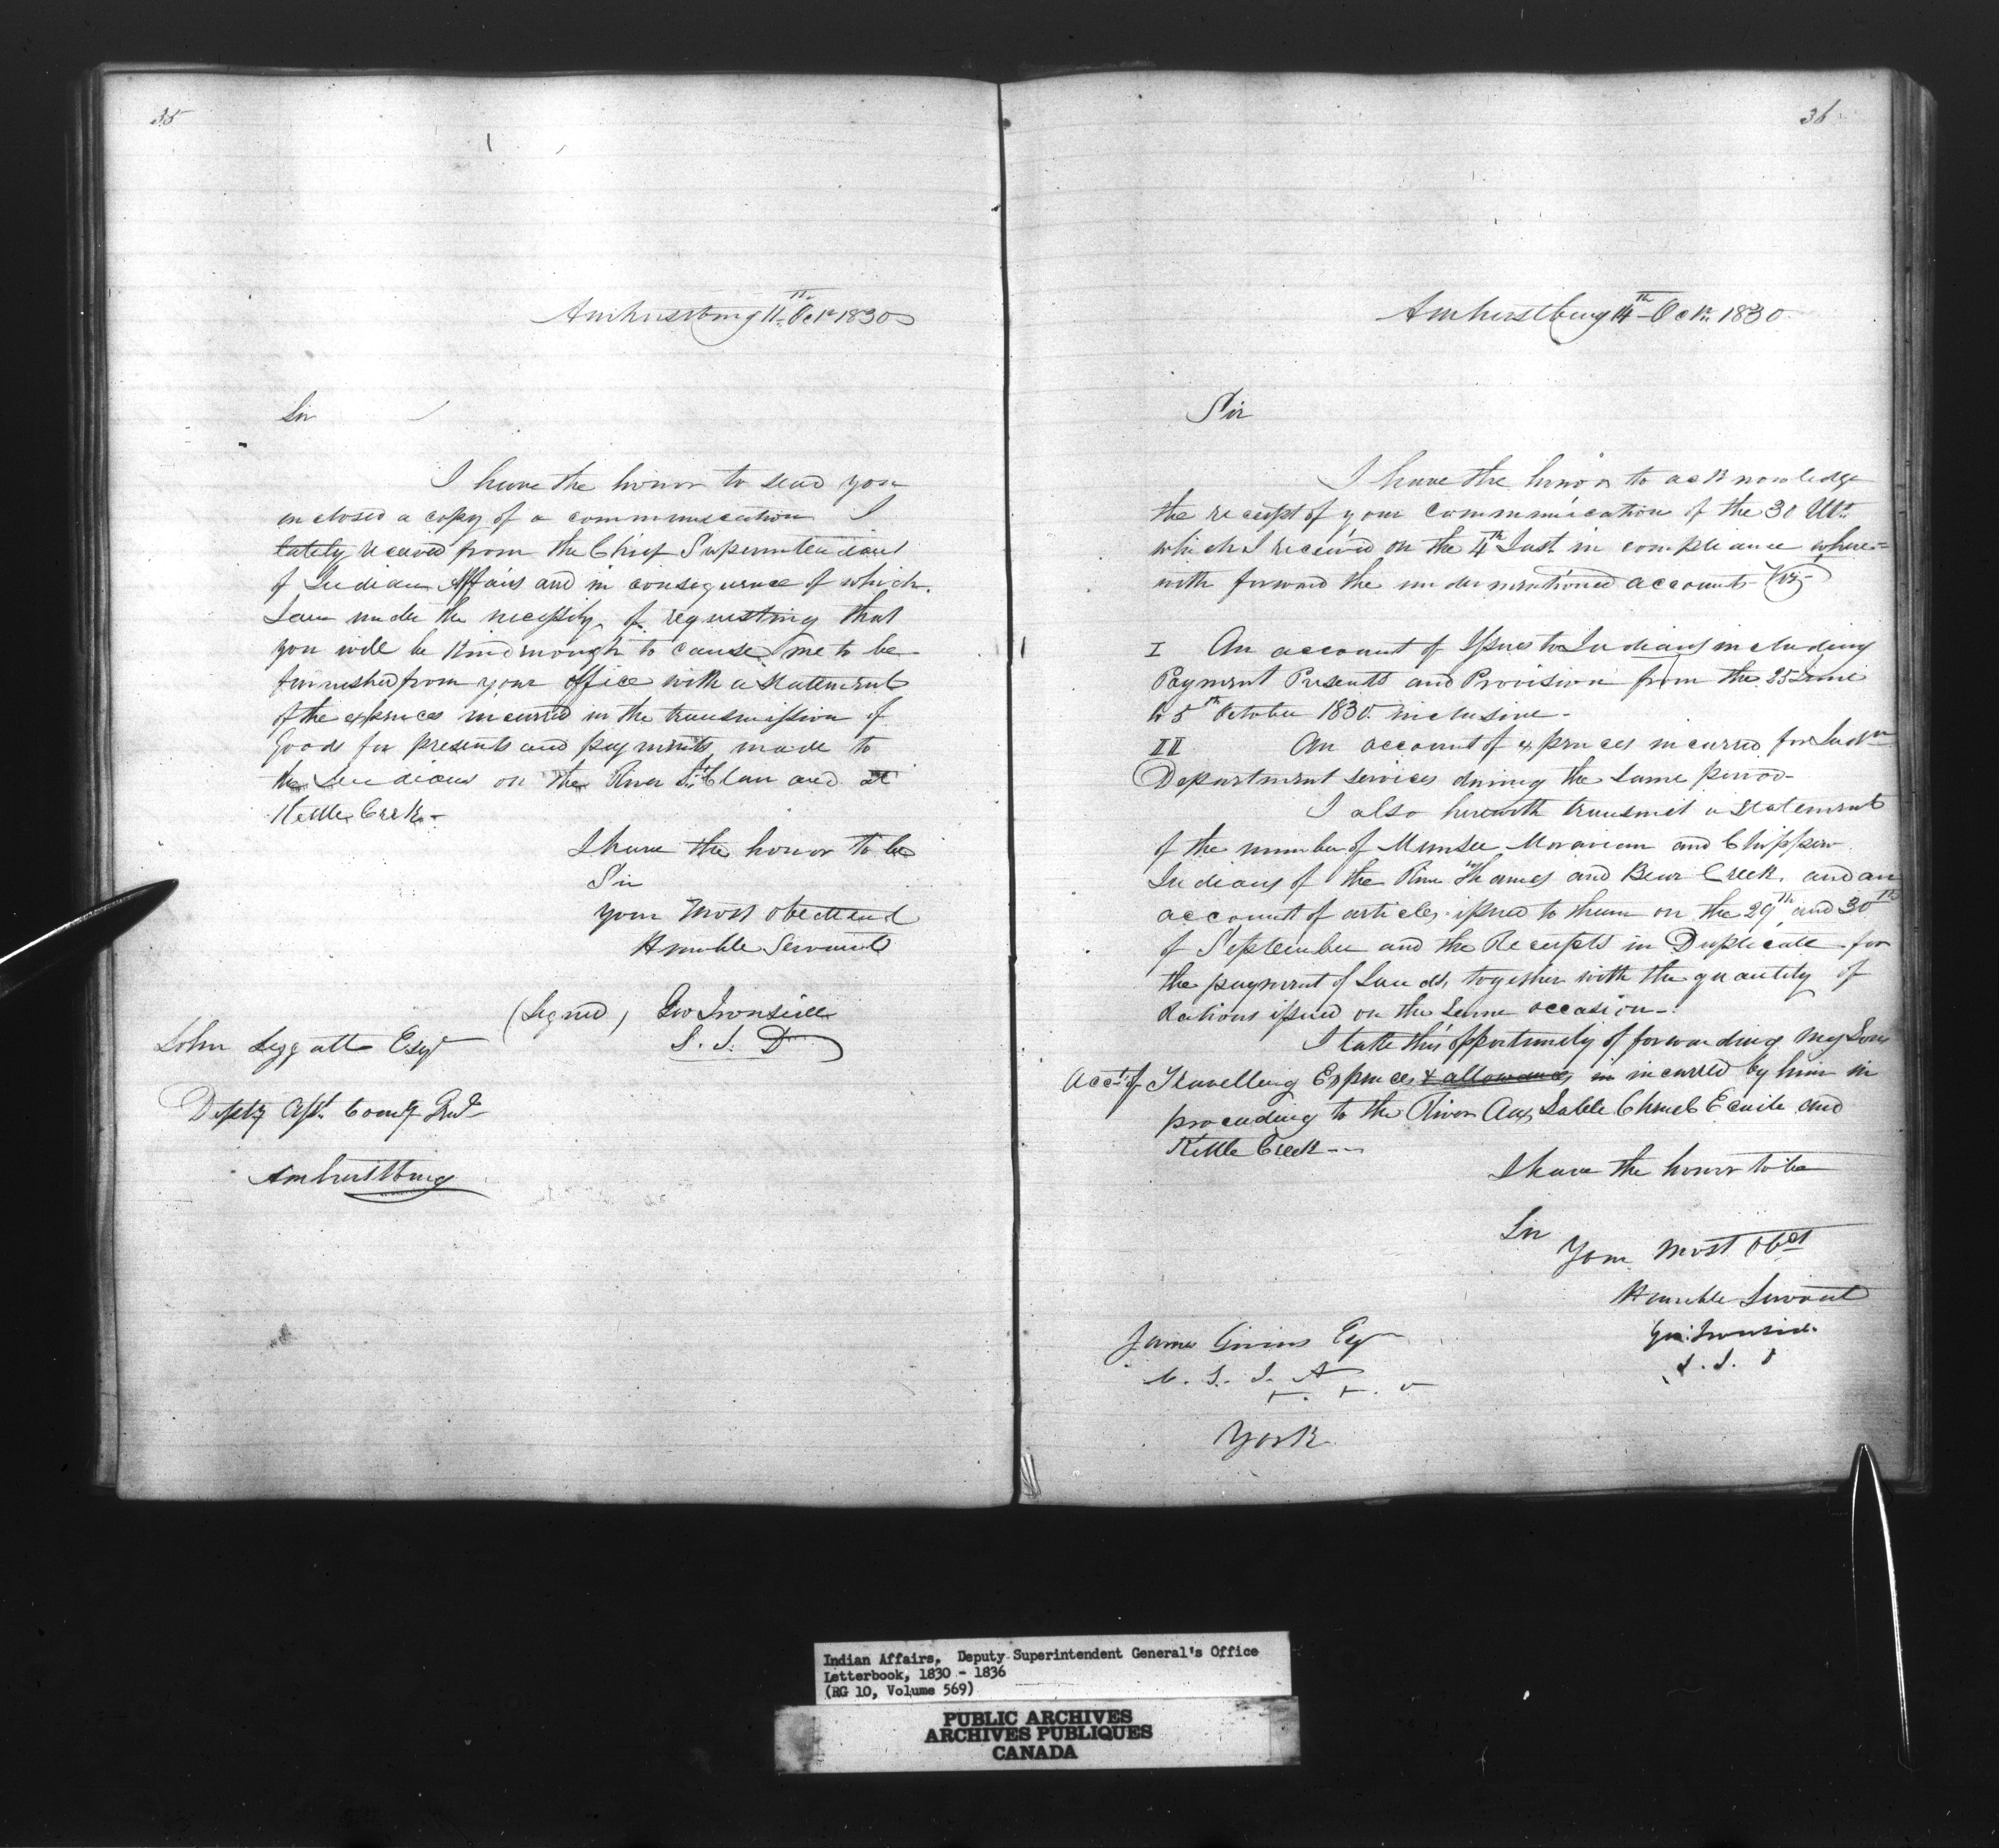 35
Amherstburg 11th Octr 1830
Sir
I have the honor to send you
enclosed a copy of a communication I
lately received from the Chief Superintendant
of Indian Affairs and in consequence of which
I am under the necessity of requesting that
you will be kind enough to cause me to be
furnished from your office with a statement
of the expences incurred in the transmission of
Goods for presents and payments made to
the Indians on the River St. Clair and at
Kettle Creek -
I have the honor to be
Sir
your most obedient
Humble Servant
(Signed) Geo Ironside
S. I. D
John Leggatt Esqr
Depty Asst. Comy Genl
Amherstburg
36
Amherstburg 14th Octr. 1830
Sir
I have the honor to acknowledge
the receipt of your communication of the 30 Ulto.
which I received on the 4th Inst in compliance where=
with forward the undermentioned accounts Viz-
I An account of Issues to Indians including
Payment Presents and Provision from the 25 June
to 5th October 1830. inclusive -
II An account of expences incurred for Indn
Department services during the same period -
I also herewith transmit a statement
of the number of Munsee Moravian and Chippewa
Indians of the River Thames and Bear Creek, and an
account of articles issued to them on the 29th and 30th
of September and the Receipts in Duplicate for
the payment of Lands, together with the quantity of
Rations issued on the same occasion -
I take this opportunity of forwarding my Sons
Acct. of Travelling Expences & allowances in incurred by him in
proceeding to the River Aux Sable Chenel Ecarte and
Kettle Creek - -
I have the honor to be
Sir
Your most obet
Humble Servant
Geo: Ironside
S. I. D
James Givins Esqr
C. S. I. A
York
Indian Affairs, Deputy Superintendent General's Office
Letterbook, 1830 - 1836
(RG 10, Volume 569)
PUBLIC ARCHIVES
ARCHIVES PUBLIQUES
CANADA